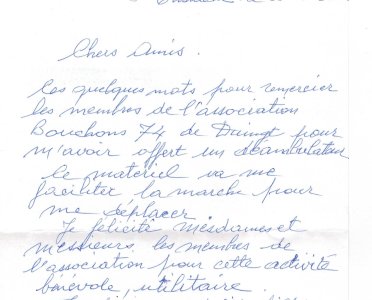 Chers Amis.
Ces quelques mots pour remercier
les membres de l'association
Bouchons 74 de Duingt pour
m'avoir offert un déambulateur
le matériel va me
faciliter la marche pour
me déplacer
Je félicite mesdames et
messieurs, les membres de
l'association pour cette activité
bénévole, utilitaire.